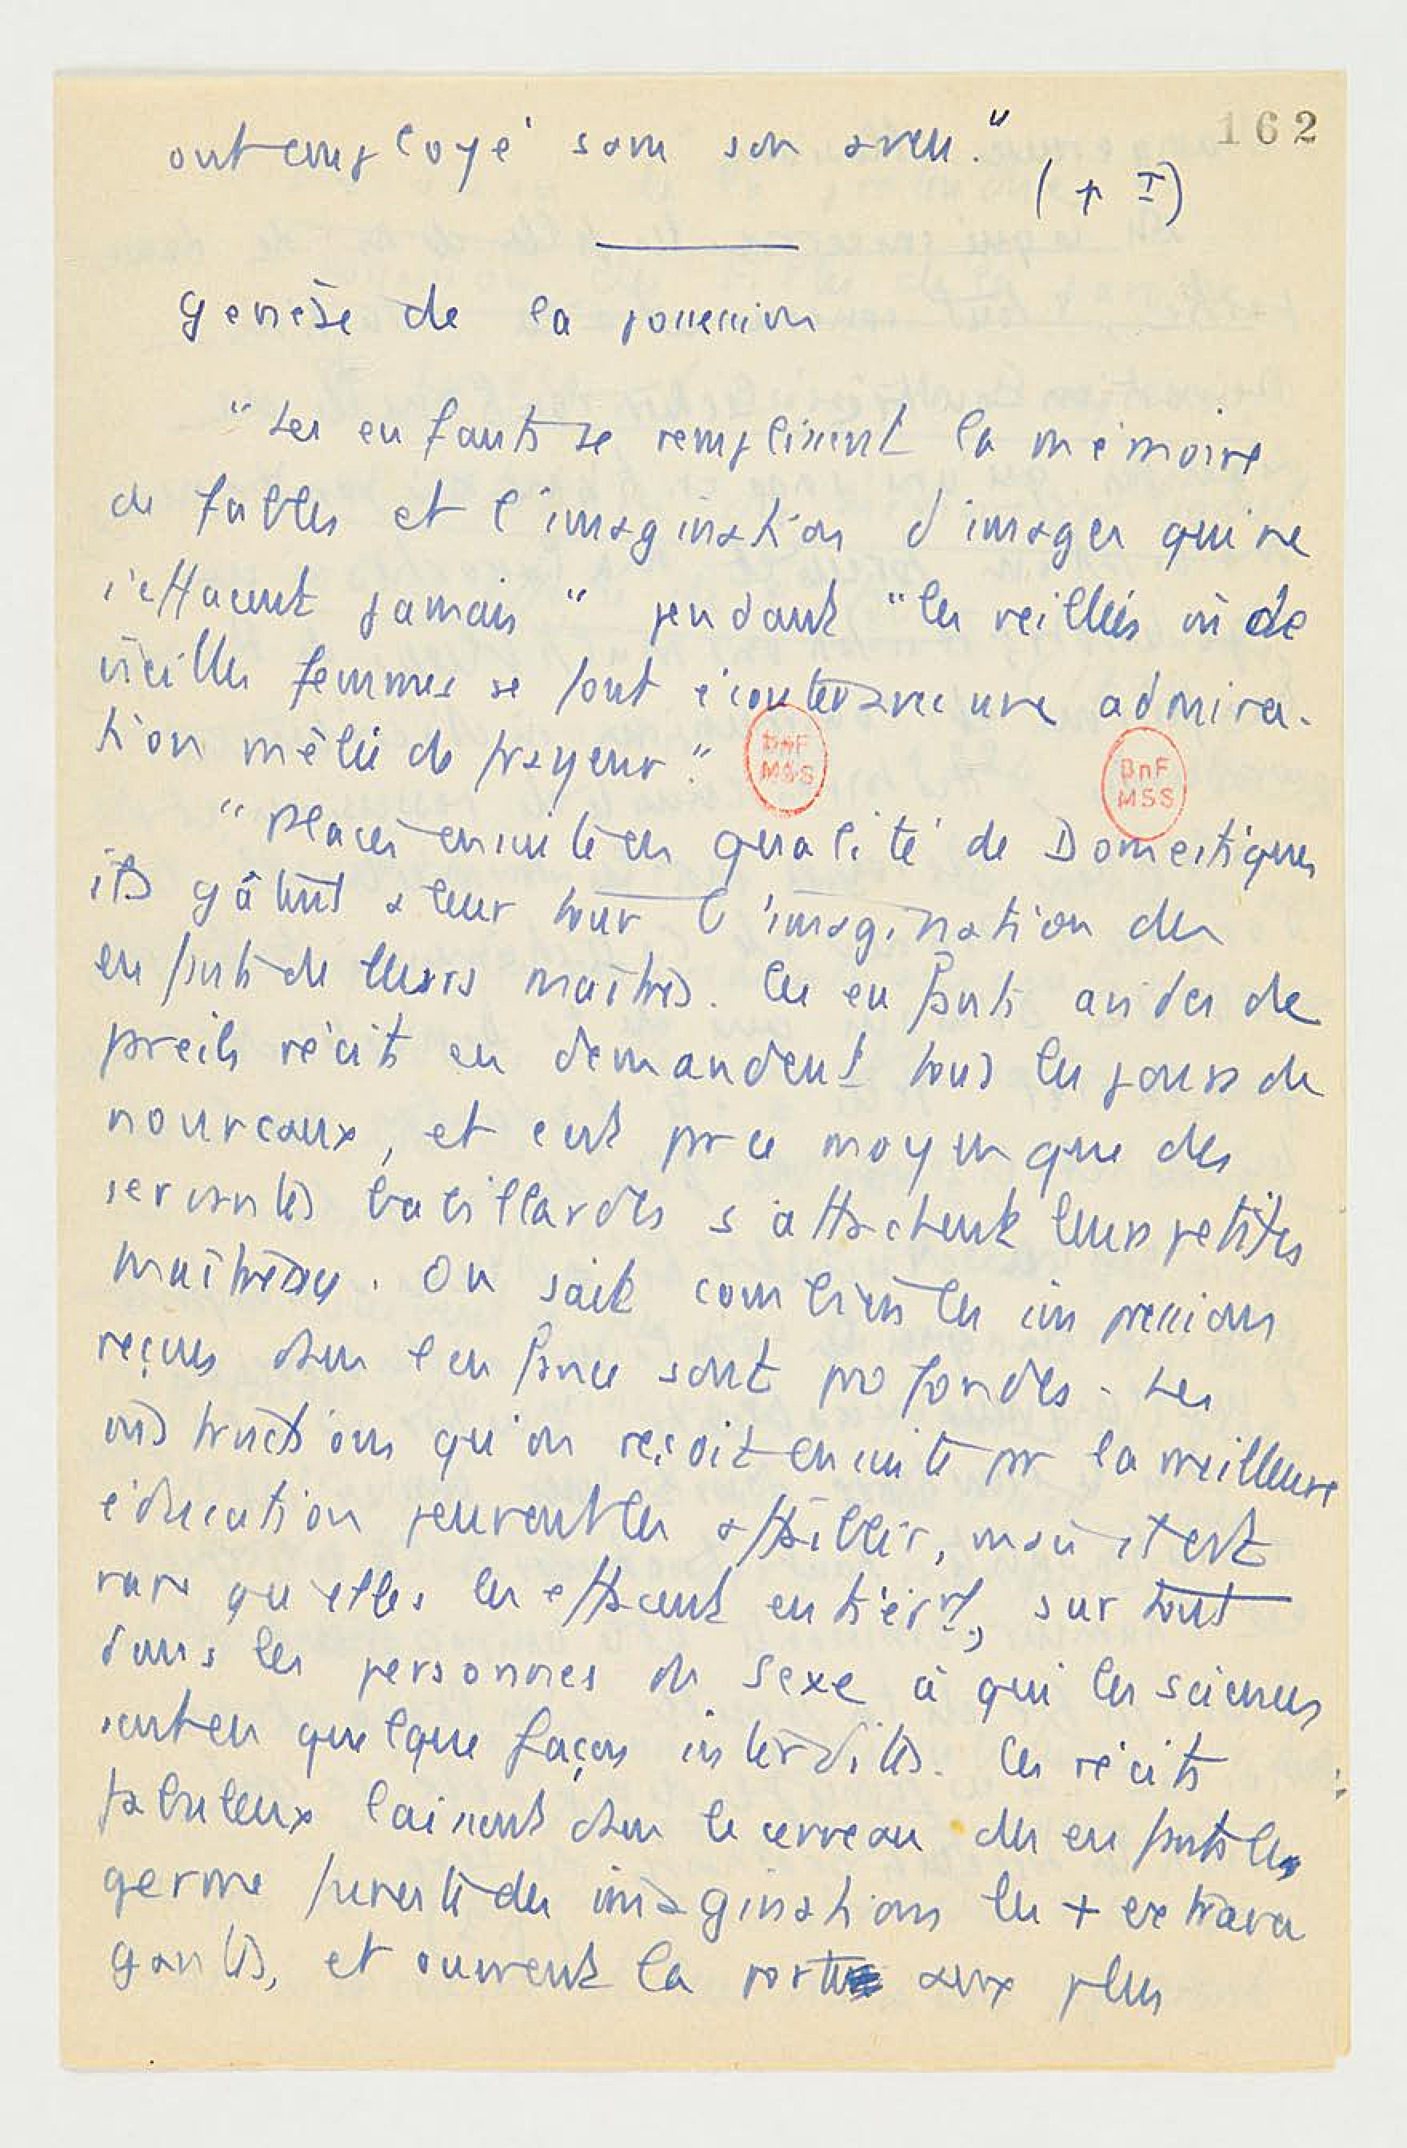 162
ont employé sans son aveu."
(p I)
genèse de la possession
"Les enfants se remplissent la mémoire
de fables et l'imagination d'images qui ne
s'effacent jamais" pendant "les veillées où de
vieilles femmes se font écouter avec une admira-
tion mêlée de frayeur."
BnF
MSS
BnF
MSS
"Placés ensuite en qualité de Domestiques
ils gâtent à leur tour l'imagination des
enfants de leurs maîtres. Ces enfants avides de
pareils récits en demandent tous les jours de
nouveaux, et c'est par ce moyen que des
servantes babillardes s'attachent leurs petites
maîtresses. On sait combien les impressions
reçues dans l'enfance sont profondes. Les
instructions qu'on reçoit ensuite par la meilleure
éducation peuvent les affaiblir, mais il est
rare qu'elles les effacent entièrt, sur tout
dans les personnes du Sexe à qui les sciences
sont en quelque façon interdites. Ces récits
fabuleux laissent dans le cerveau des enfants les
germe funeste des imaginations les + extrava
gantes, et ouvrent la porte aux plus